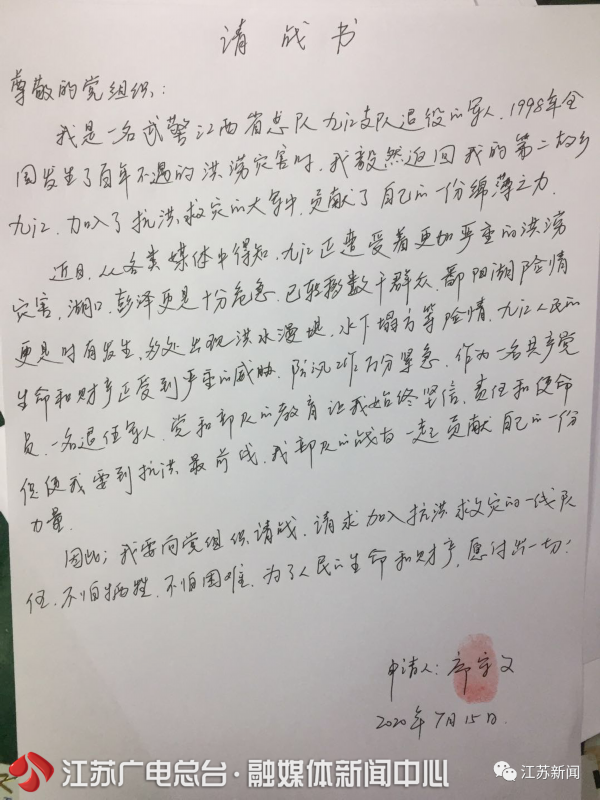 请战书
尊敬的党组织:
我是一名武警江西省总队九江支队退役的军人,1998年全
国发生了百年不遇的洪涝灾害时,我毅然返回我的第二故乡
九江,加入了抗洪救灾的大军中,贡献了自己的一份绵薄之力
近日,从各类媒体中得知,九江正遭受着更加严重的洪涝
灾害,湖口,彭泽更是十分危急,已转移数千群众,鄱阳湖险情
更是时有发生,多处出现洪水漫堤,水下塌方等险情,九江人民的
生命和财产正受到严重的威胁,防汛工作万分紧急,作为一名共产党
员,一名退伍军人,党和部队的教育让我始终坚信,责任和使命
促使我要到抗洪最前线,我部队的战友一起贡献自己的一份
力量.
因此;我要向党组织请战,请求加入抗洪救灾的一线队
伍,不怕牺牲,不怕困难,为了人民的生命和财产,愿付出一切!
申请人:
2020年7月15日.
江苏广电总台·融媒体新闻中心
江苏新闻